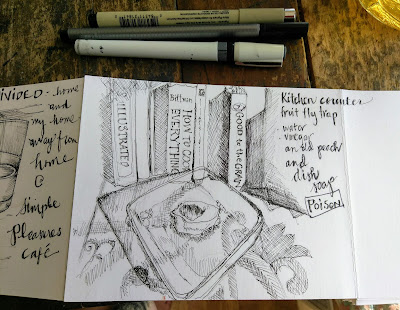 VIDED - home
and
my home
away from
home
@
Simple
Pleasures
Café
ILLUSTRATED
Bittman
HOW TO COOK
EVERYTHING
GOOD to the GRAIN
Kitchen counter
fruit fly trap
water
vinegar
an old peach
and
dish
soap
POISON